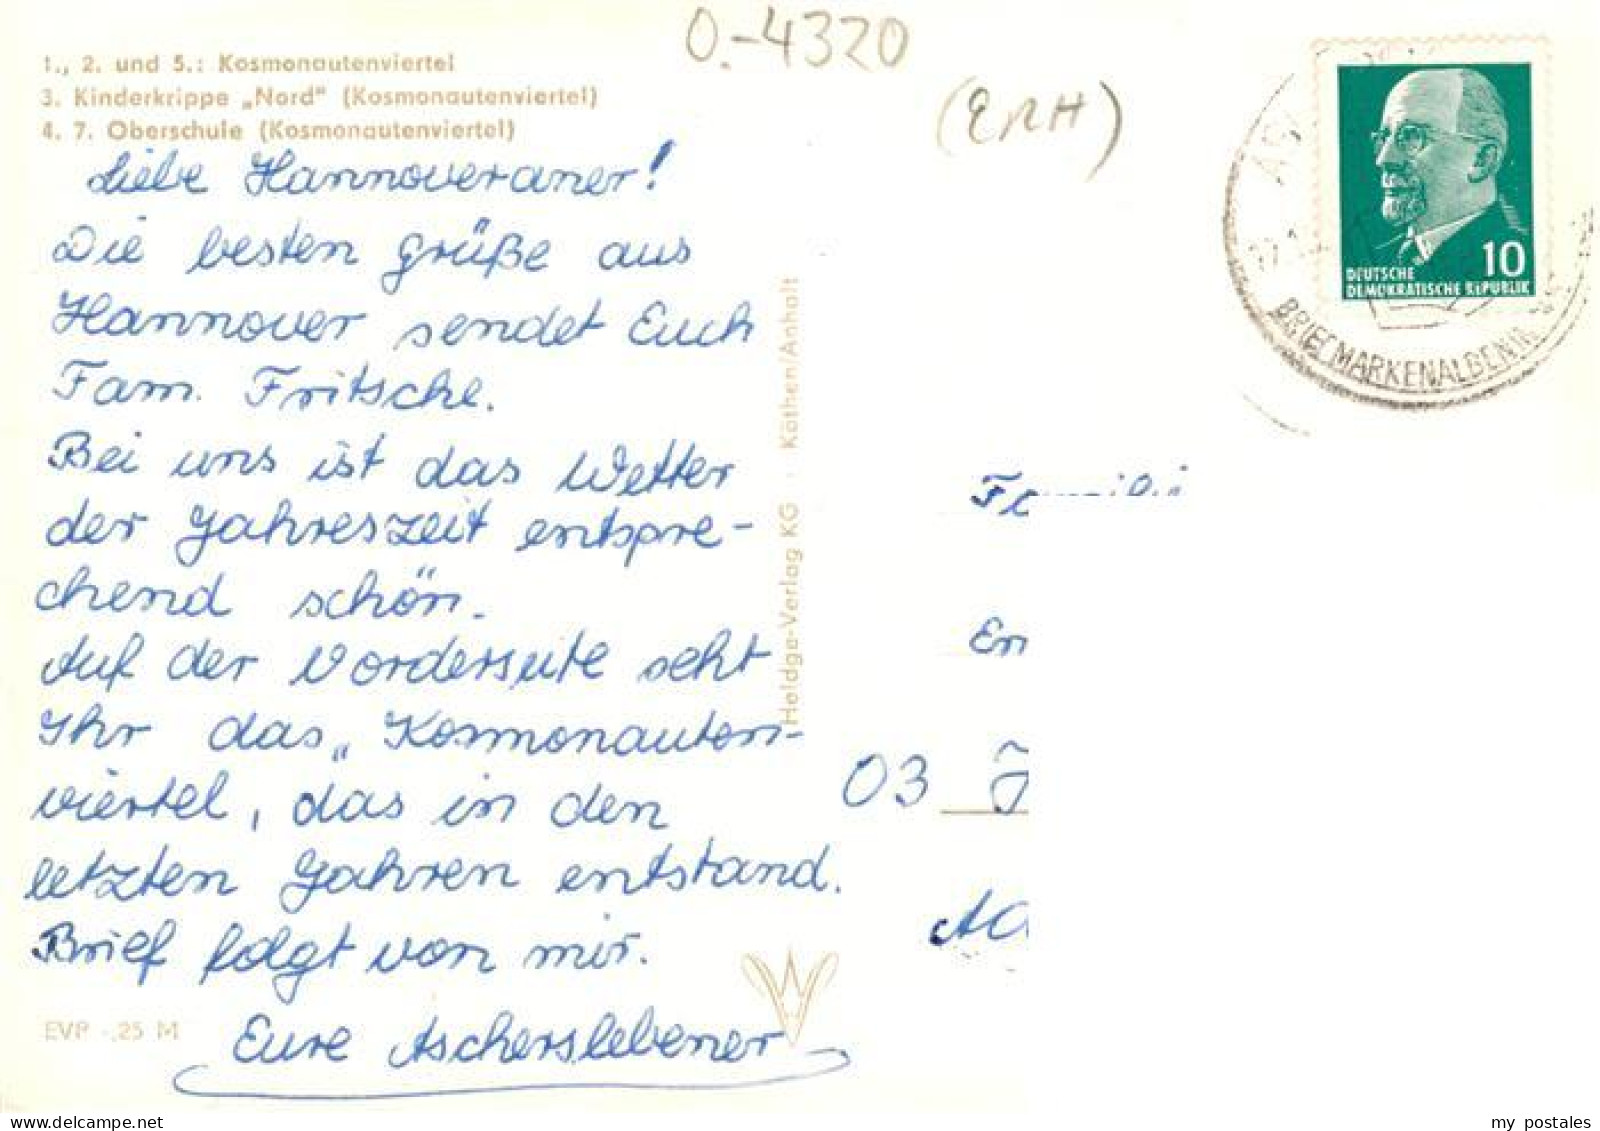 O.-4320
(ERH)
1., 2. und 5.: Kosmonautenviertel
3. Kinderkrippe „Nord" (Kosmonautenviertel)
4. 7. Oberschule (Kosmonautenviertel)
Liebe Hannoveraner!
Die besten Grüße aus
Hannover sendet Euch
Fam. Fritsche.
Bei uns ist das Wetter
der Jahreszeit entspre-
chend schön.
Auf der Vorderseite seht
Ihr das „Kosmonauten-
viertel, das in den
letzten Jahren entstand.
Brief folgt von mir.
Eure Ascherslebener
EVP -,25 M
Heldge-Verlag KG · Köthen/Anhalt
10
DEUTSCHE
DEMOKRATISCHE REPUBLIK
BRIEFMARKENALBEN
03
my postales